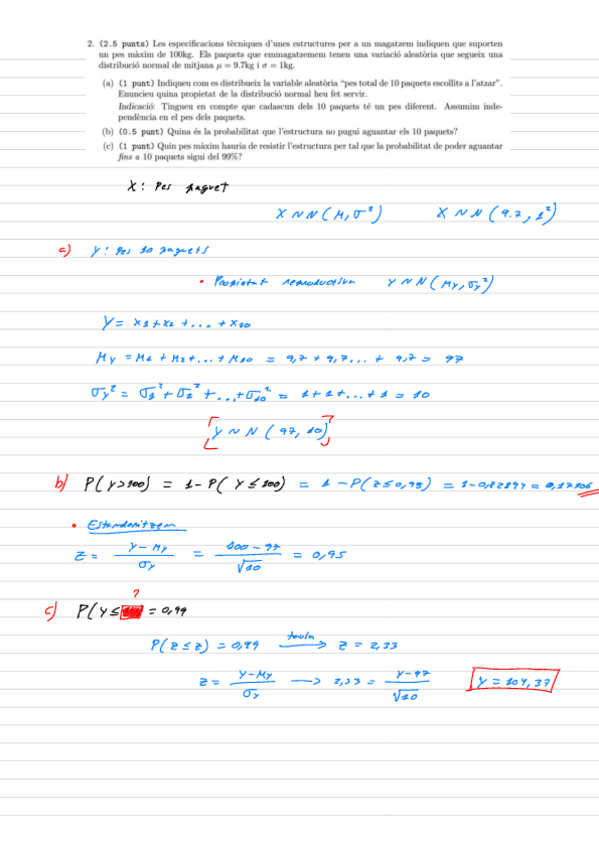 2. (2.5 punts) Les especificacions tècniques d'unes estructures per a un magatzem indiquen que suporten
un pes màxim de 100kg. Els paquets que emmagatzemem tenen una variació aleatòria que segueix una
distribució normal de mitjana μ = 9.7kg i σ = 1kg.
(a) (1 punt) Indiqueu com es distribueix la variable aleatòria "pes total de 10 paquets escollits a l'atzar".
Enuncieu quina propietat de la distribució normal heu fet servir.
Indicació: Tingueu en compte que cadascun dels 10 paquets té un pes diferent. Assumim inde-
pendència en el pes dels paquets.
(b) (0.5 punt) Quina és la probabilitat que l'estructura no pugui aguantar els 10 paquets?
(c) (1 punt) Quin pes màxim hauria de resistir l'estructura per tal que la probabilitat de poder aguantar
fins a 10 paquets sigui del 99%?
X: Pes paquet
X ~ N(M, σ²) X ~ N(9.7, 1²)
a) Y: Pes 10 paquets
• Propietat reproductiva Y ~ N(My, σy²)
Y = X1 + X2 + ... + X10
My = M1 + M2 + ... + M10 = 9,7 + 9,7... + 9,7 = 97
σy² = σ1² + σ2² + ... + σ10² = 1 + 1 + ... + 1 = 10
[Y ~ N(97, 10)]
b) P(Y>100) = 1 - P(Y ≤ 100) = 1 - P(Z ≤ 0,95) = 1 - 0,82894 = 0,17106
• Estandaritzem
Z = (Y - My)/σy = (100 - 97)/√10 = 0,95
?
c) P(Y ≤ = 0,99
P(Z ≤ z) = 0,99 taula → z = 2,33
z = (Y - My)/σy → 2,33 = (Y - 97)/√10 Y = 104,37